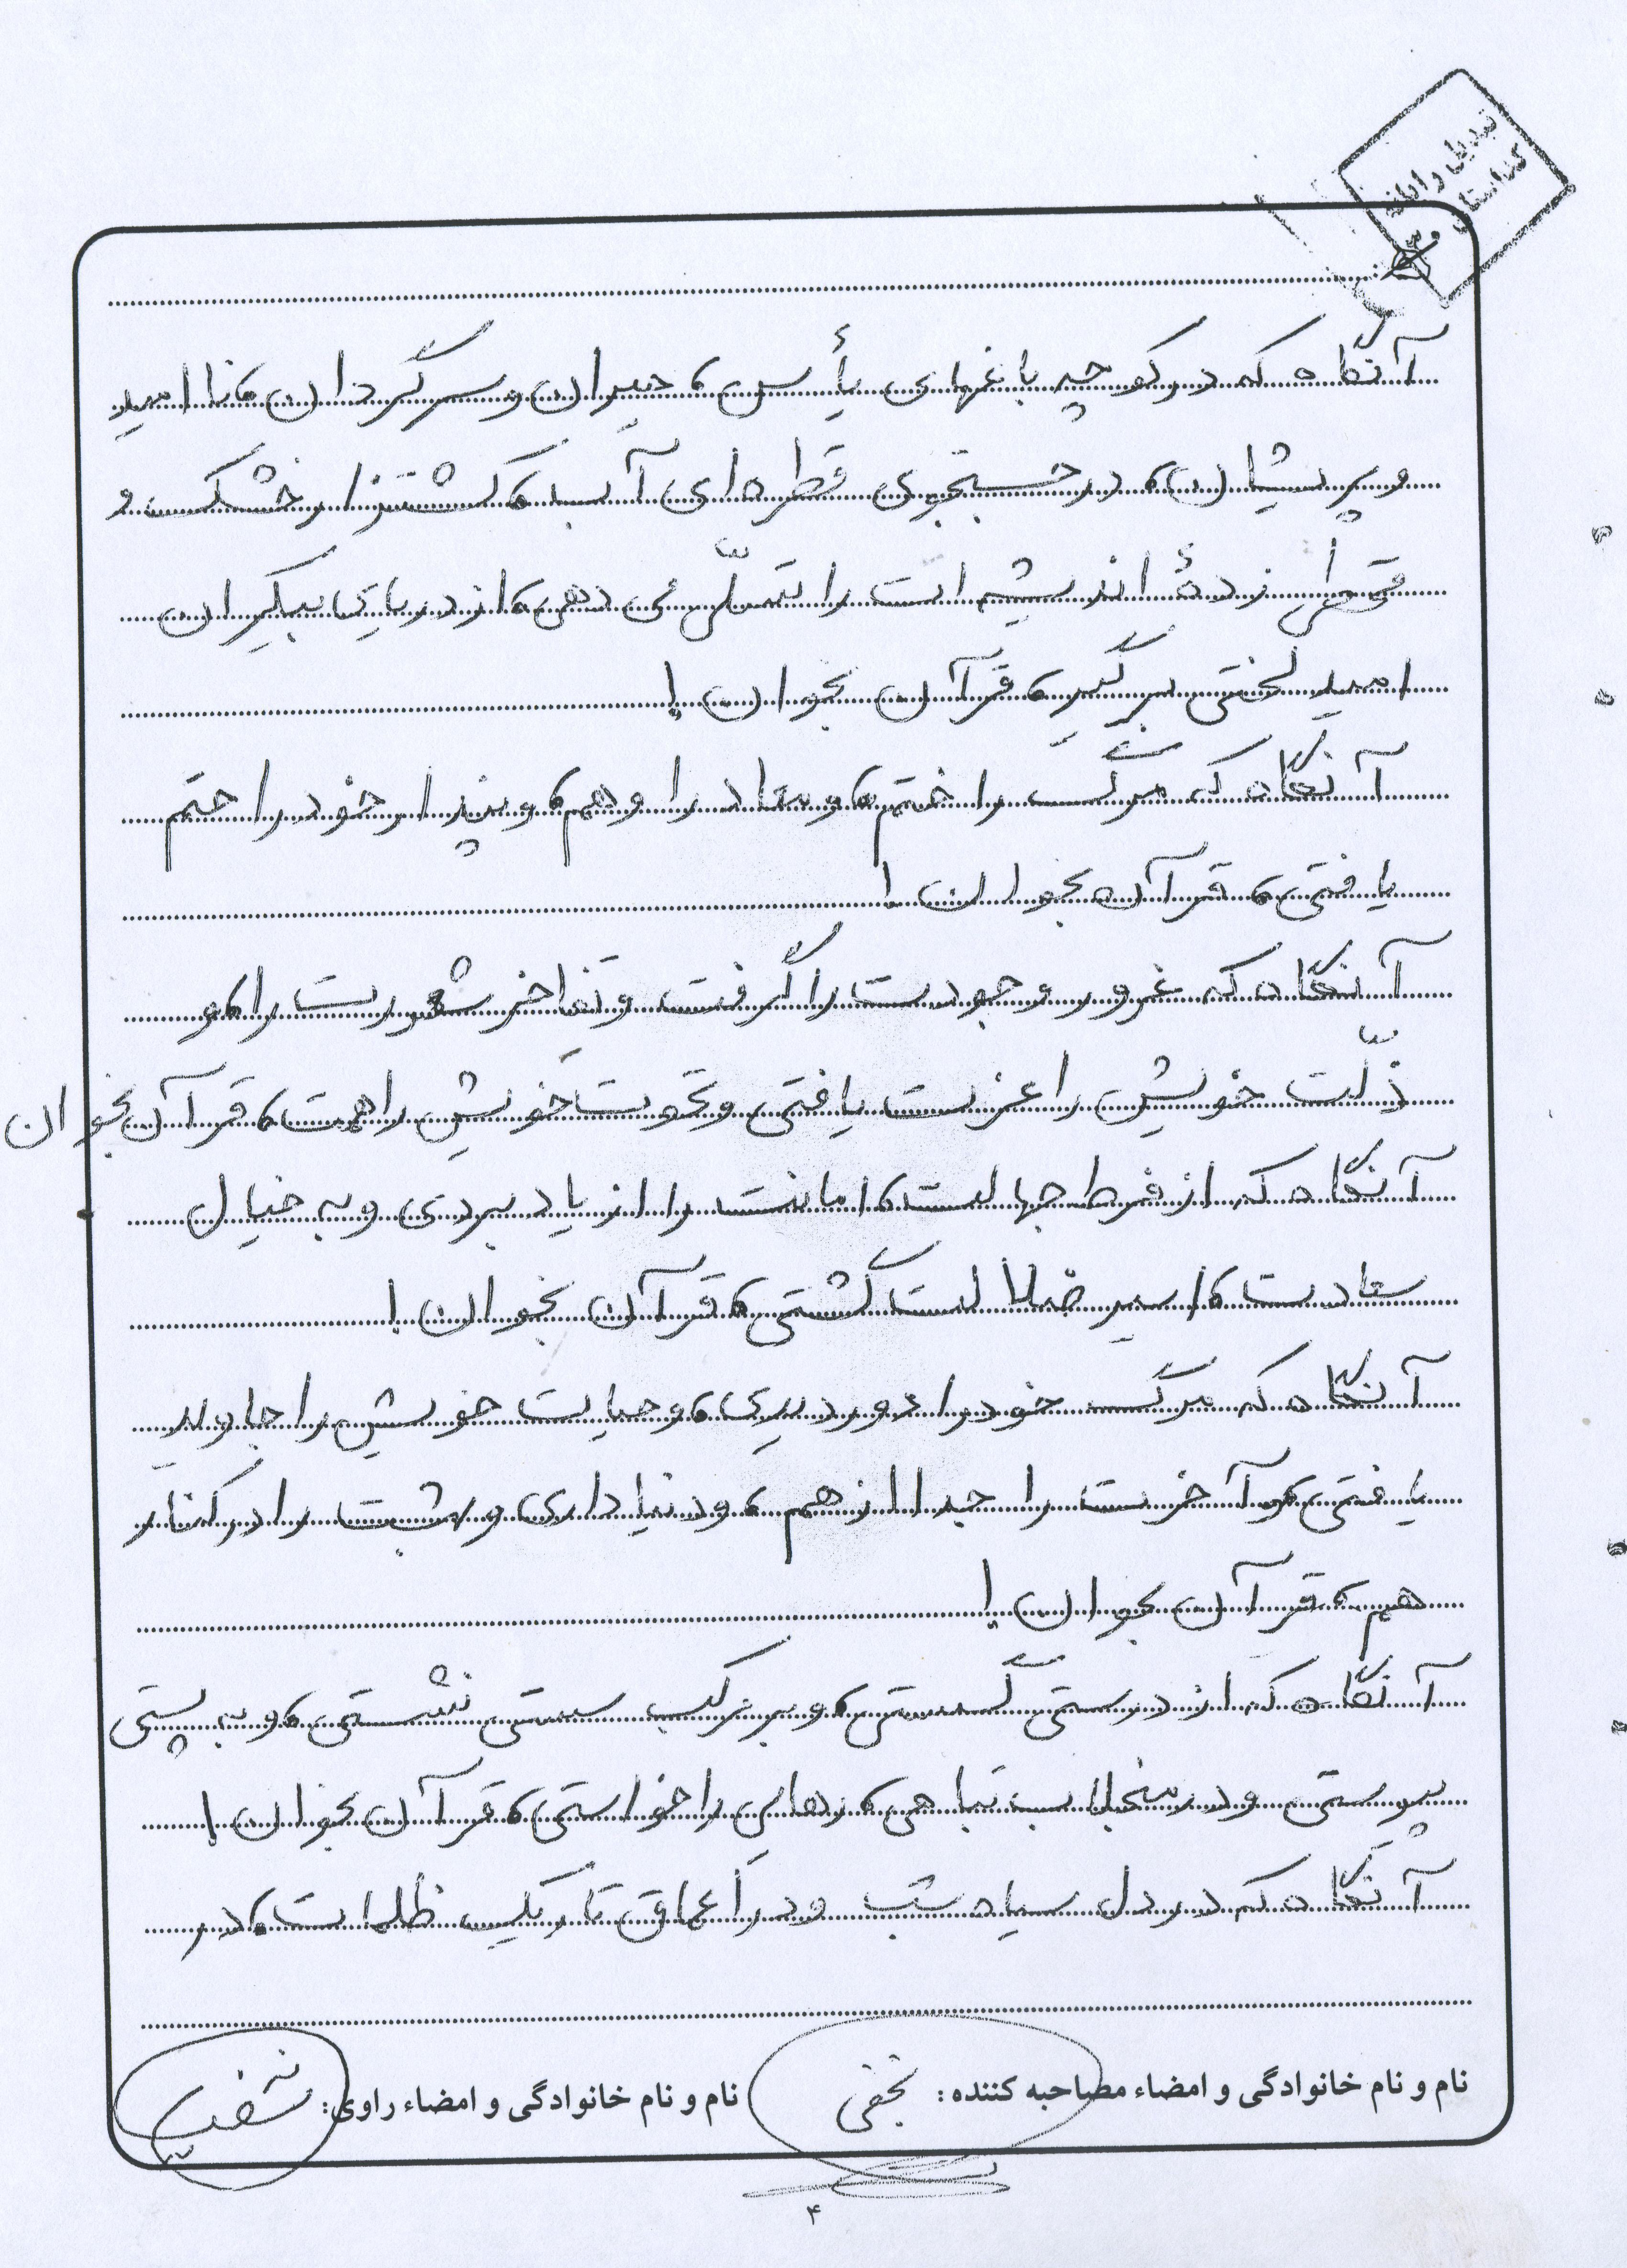 تبدیل رایانه
کد استان
۳۰
آنگاه که در کوچه باغهای یأس، حیران و سرگردان، ناامید
و پریشان، در جستجوی قطره‌ای آب، کشتزار خشک و
قحطی زدهٔ اندیشه‌ات را تسلّی می دهی، از دریای بیکران
امید لختی برگیر، قرآن بخوان!
آنگاه که مرگ را ختم، و معاد را وهم، و پندار خود را حتم
یافتی، قرآن بخوان!
آنگاه که غرور وجودت را گرفت و تفاخر شعورت را، و
ذلّت خویش را عزت یافتی و نخوت خویش را همت، قرآن بخوان
آنگاه که از فرط جهالت، امانت را از یاد بردی و به خیال
سعادت، اسیر ضلالت گشتی، قرآن بخوان!
آنگاه که مرگ خود را دور دیدی، و حیات خویش را جاوید
یافتی، و آخرت را جدا از هم، و دنیا داری و بهشت را در کنار
هم، قرآن بخوان!
آنگاه که از درستی گسستی، و بر مرکب سستی نشستی، و به پستی
پیوستی و در منجلاب تباهی، رهایی را خواستی، قرآن بخوان!
آنگاه که در دل سیاه شب و در اعماق تاریک ظلمات، در
نام و نام خانوادگی و امضاء مصاحبه کننده: نجفی نام و نام خانوادگی و امضاء راوی:
۴